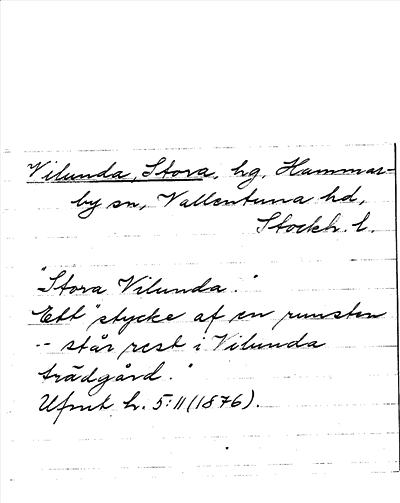 Vilunda, Stora, hg, Hammar-
by sn, Vallentuna hd,
Stockh. l.
"Stora Vilunda."
Ett "stycke af en runsten
-- står rest i Vilunda
trädgård."
Ufmt. h. 5:11 (1876).